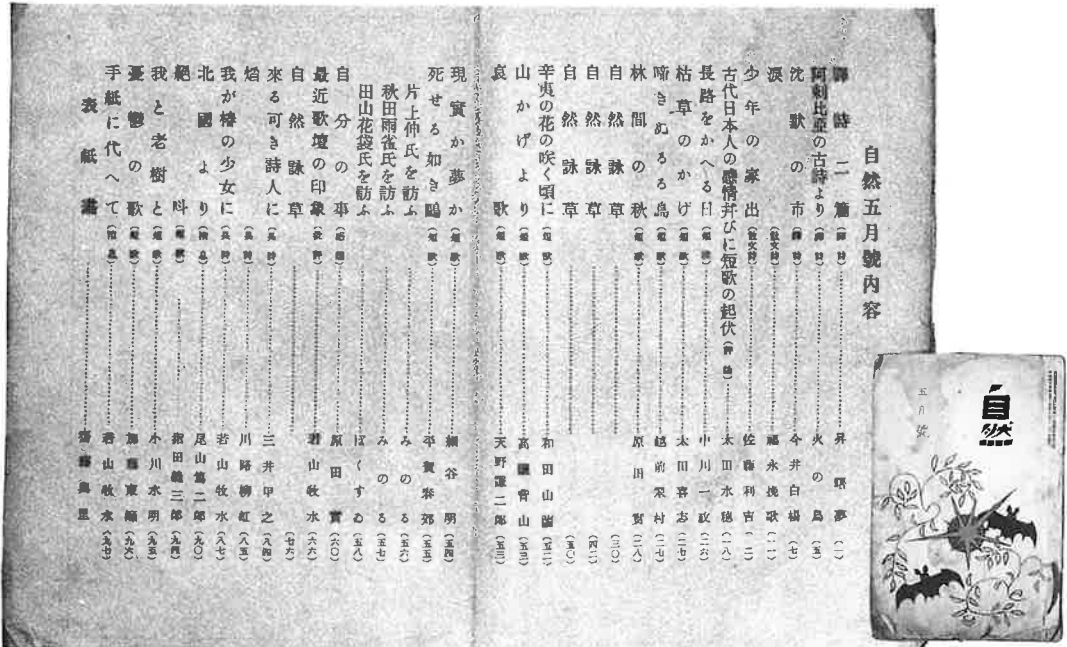 自然五月號内容
譯詩二篇（譯詩）……昇曙夢（一）
阿剌比亞の古詩より（譯詩）……火の鳥（五）
沈默の市（譯詩）……今井白楊（七）
涙（散文詩）……福永挽歌（一一）
少年の家出（散文詩）……佐藤利吉（一二）
古代日本人の感情并びに短歌の起伏（評論）……太田水穗（一八）
長路をかへる日（短歌）……中川一政（二六）
枯草のかげ（短歌）……太田喜志（二七）
啼きぬるる鳥（短歌）……越前翠村（二七）
林間の秋（短歌）……原田實（二八）
自然詠草……（三〇）
自然詠草……（四二）
自然詠草……（五〇）
辛夷の花の咲く頃に（短歌）……和田山蘭（五二）
山かげより（短歌）……高鹽背山（五三）
哀歌（短歌）……天野謙二郎（五三）
現實か夢か（短歌）……細谷明（五四）
死せる如き鷗（短歌）……平賀春郊（五五）
片上伸氏を訪ふ……みのる（五六）
秋田雨雀氏を訪ふ……みのる（五七）
田山花袋氏を訪ふ……ぼくすゐ（五八）
自分の事……原田實（六〇）
最近歌壇の印象（批評）……若山牧水（六六）
自然詠草……（七六）
來る可き詩人に（長詩）……三井甲之（八四）
焰（長詩）……川路柳虹（八五）
我が椿の少女に（長詩）……若山牧水（八七）
北國より（消息）……尾山篤二郎（九〇）
絕叫（短歌）……義三郎（九四）
我と老樹と（短歌）……小川水明（九五）
憂鬱の歌（短歌）……加藤東籬（九六）
手紙に代へて（消息）……若山牧水（九七）
表紙畫……齋藤與里
自然
五月號